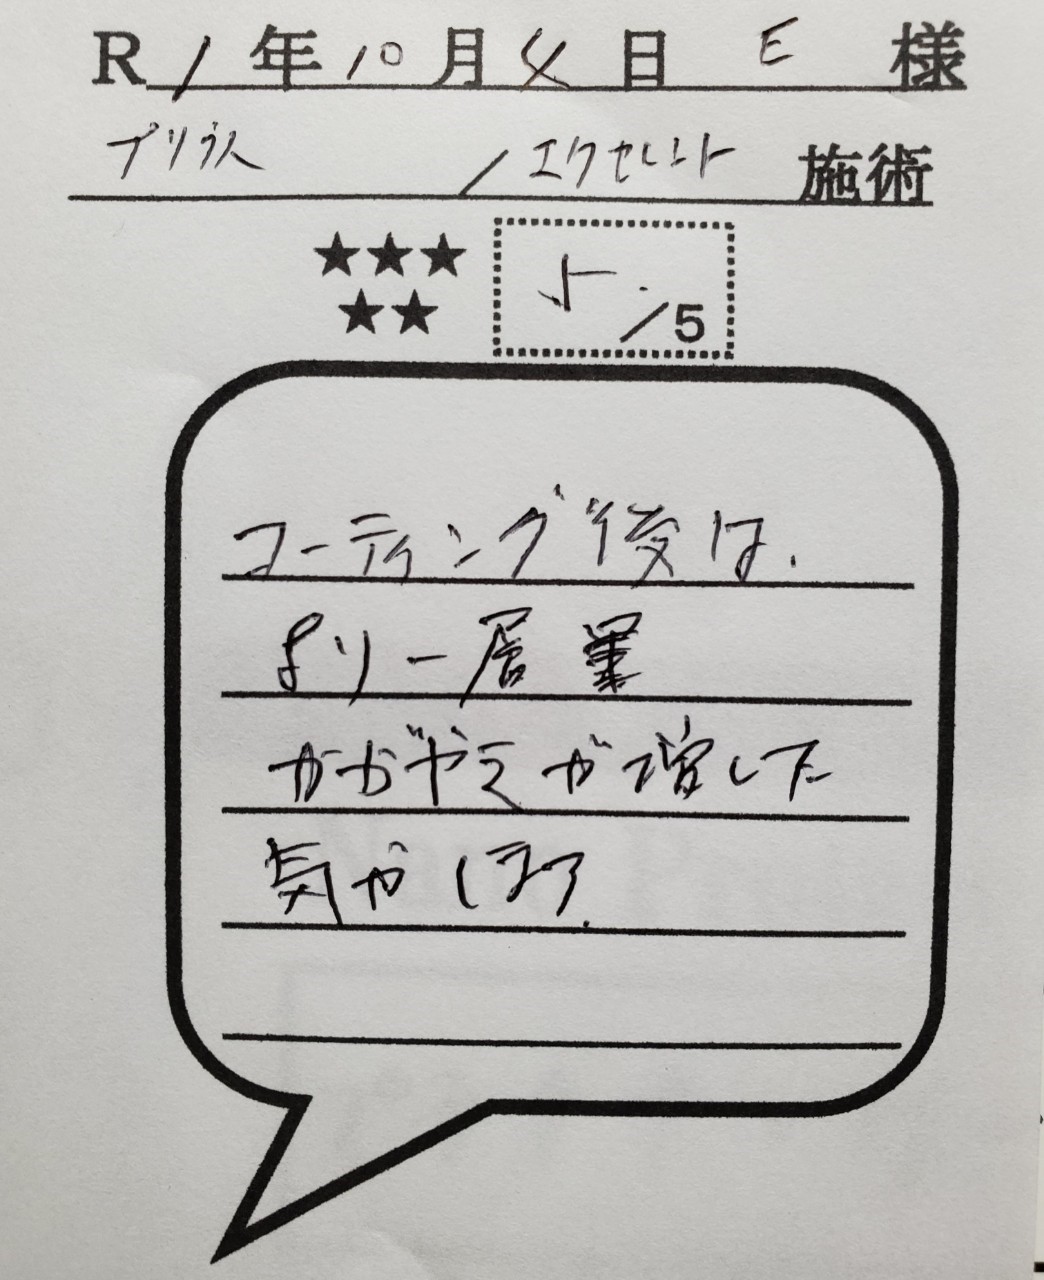 R1年10月4日 E 様
プリウス / エクセレント 施術
★★★
★★
5. /5
コーティング後は、
より一層黒
かがやきが増した
気がします。